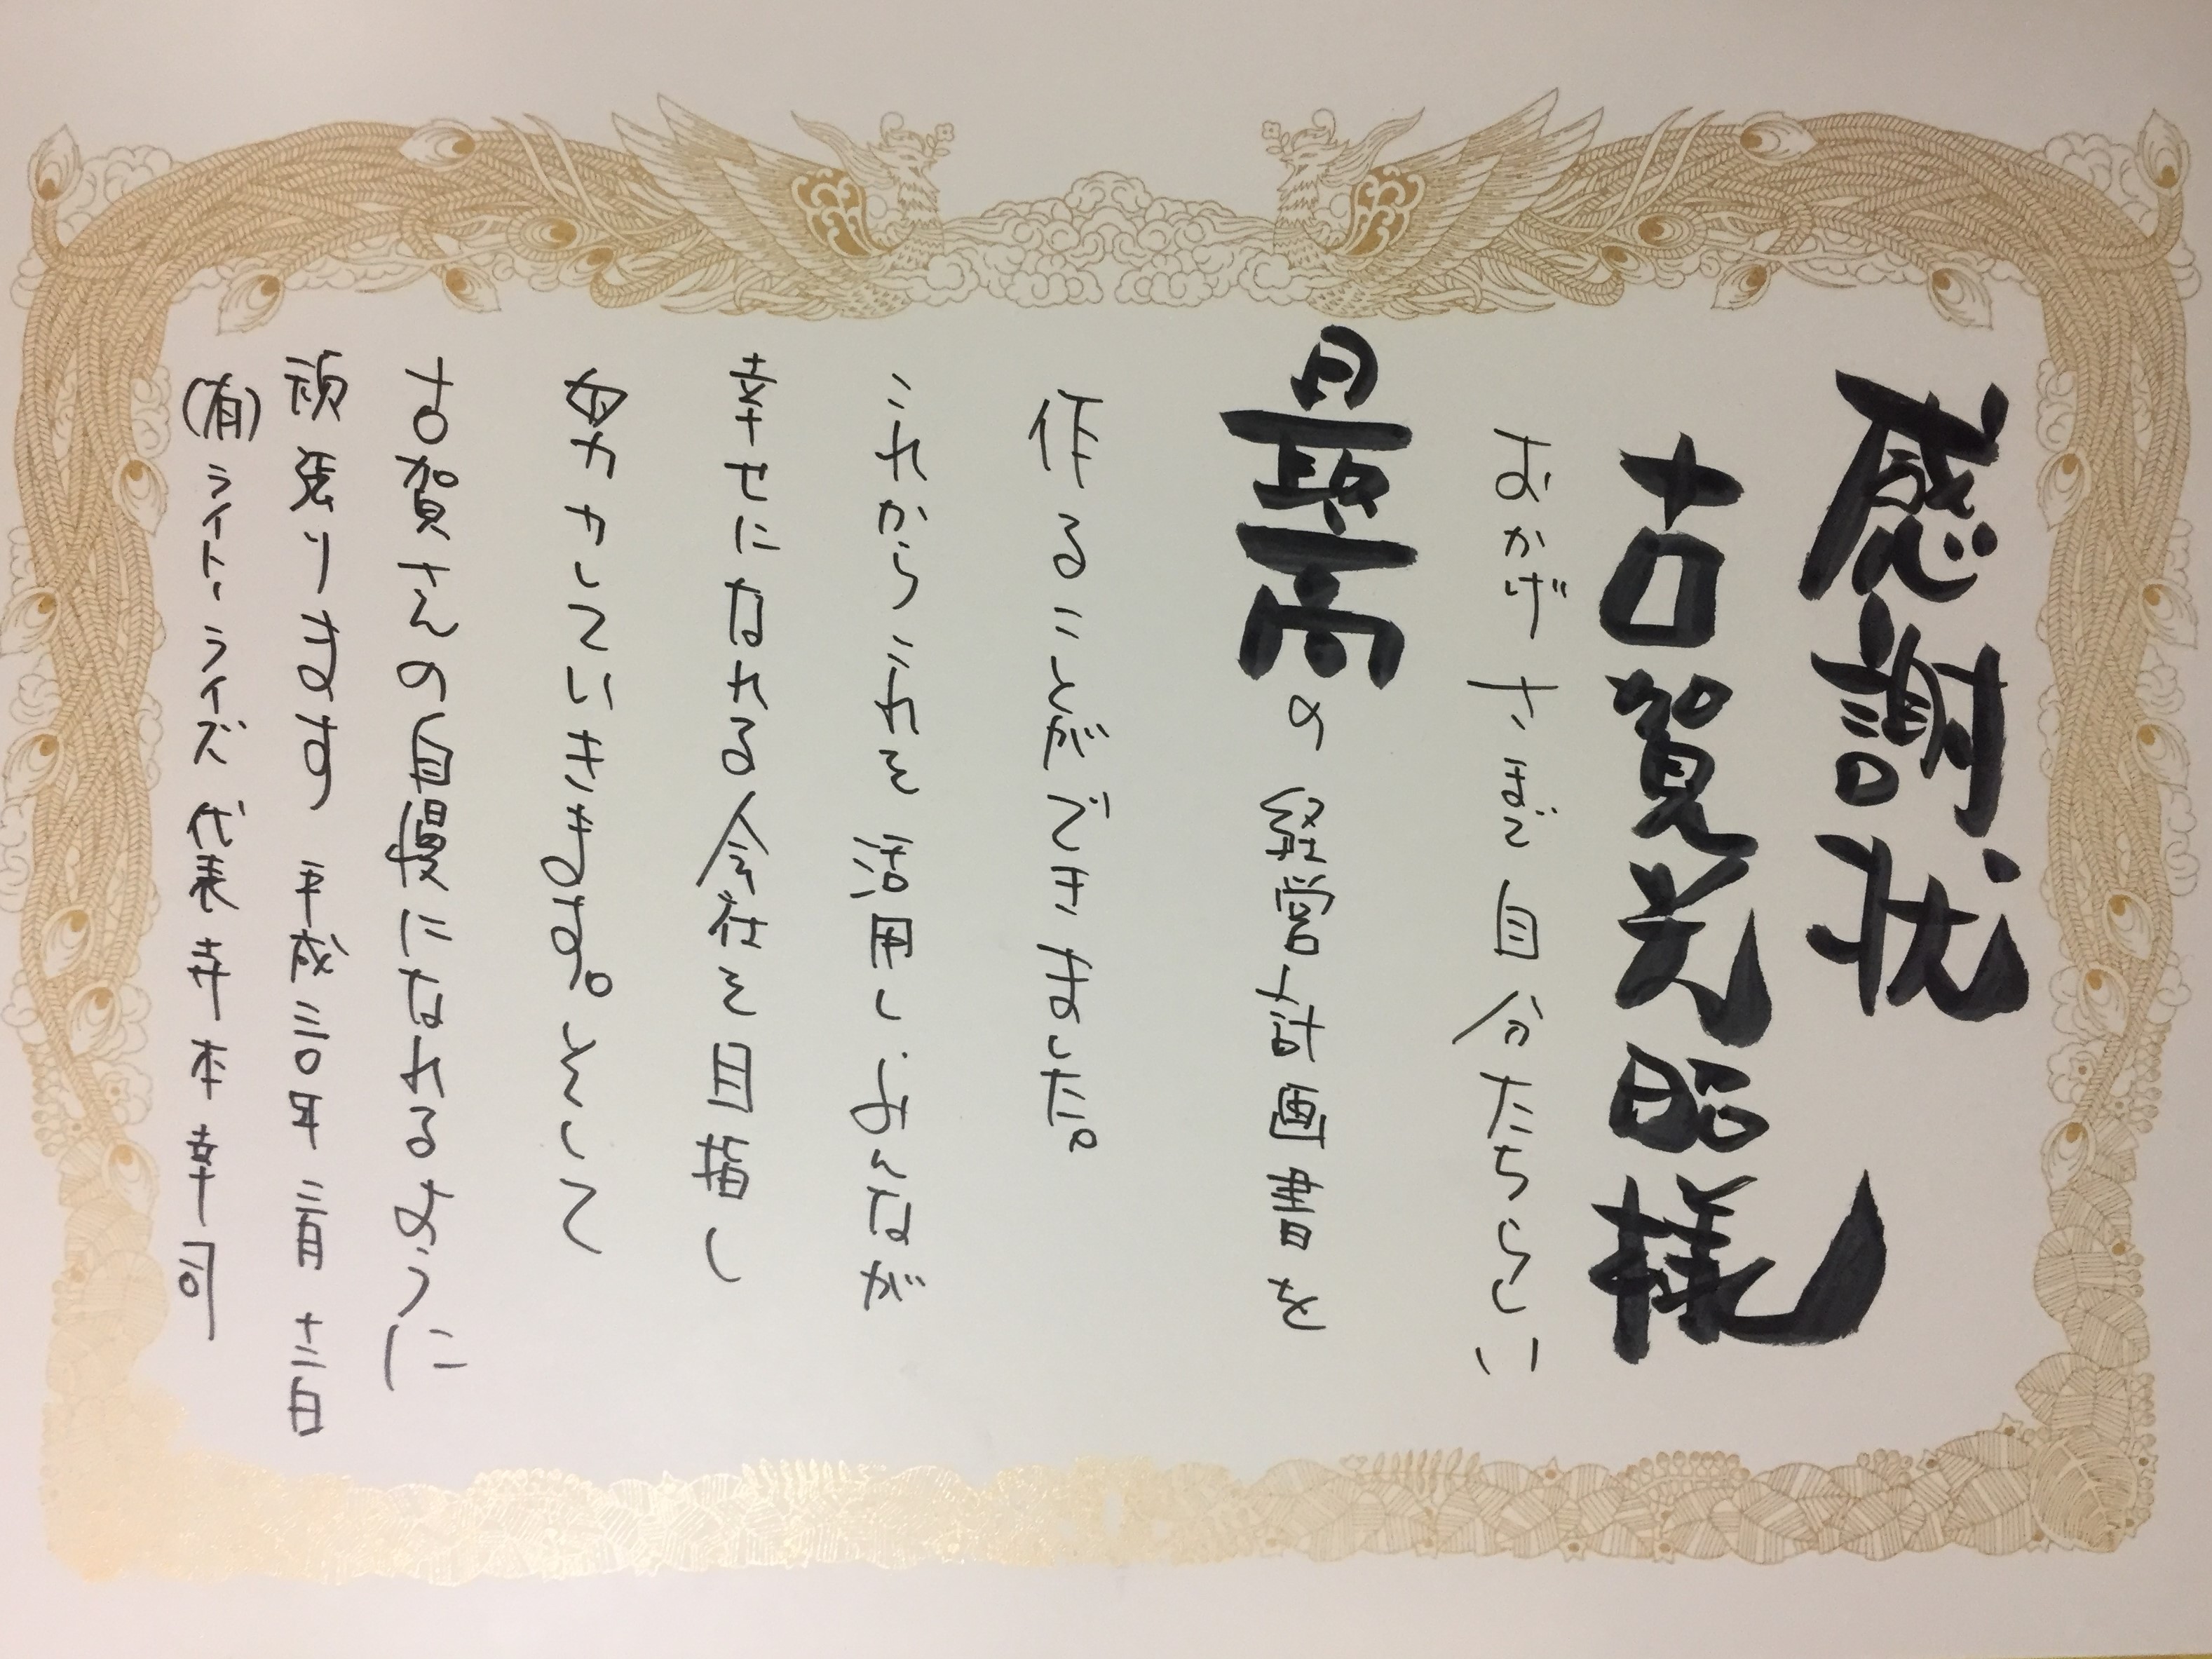 感謝状
古賀光昭様
おかげさまで自分たちらしい
最高の経営計画書を
作ることができました。
これからこれを活用しみんなが
幸せになれる会社を目指し
努力していきます。そして
古賀さんの自慢になれるように
頑張ります 平成三〇年 三月 十二日
(有)ライト・ライズ 代表 寺本幸司